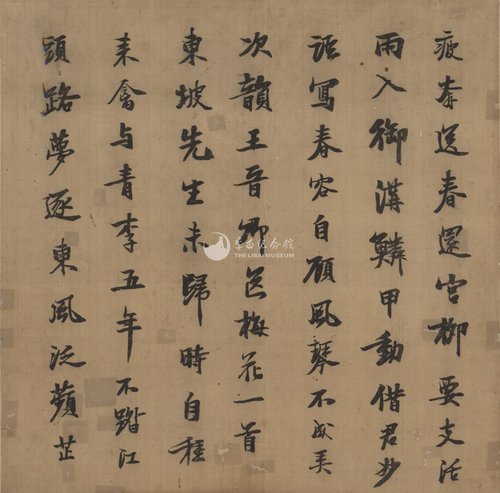 送春還宮柳要支活
雨入御溝鱗甲動借君妙
語寫春容自顧風琴不成弄
次韻王晉卿送梅花一首
東坡先生未歸時自種
来禽与青李五年不踏江
頭路夢逐東風泛蘋芷
李白纪念館
THE LIBAI MUSEUM